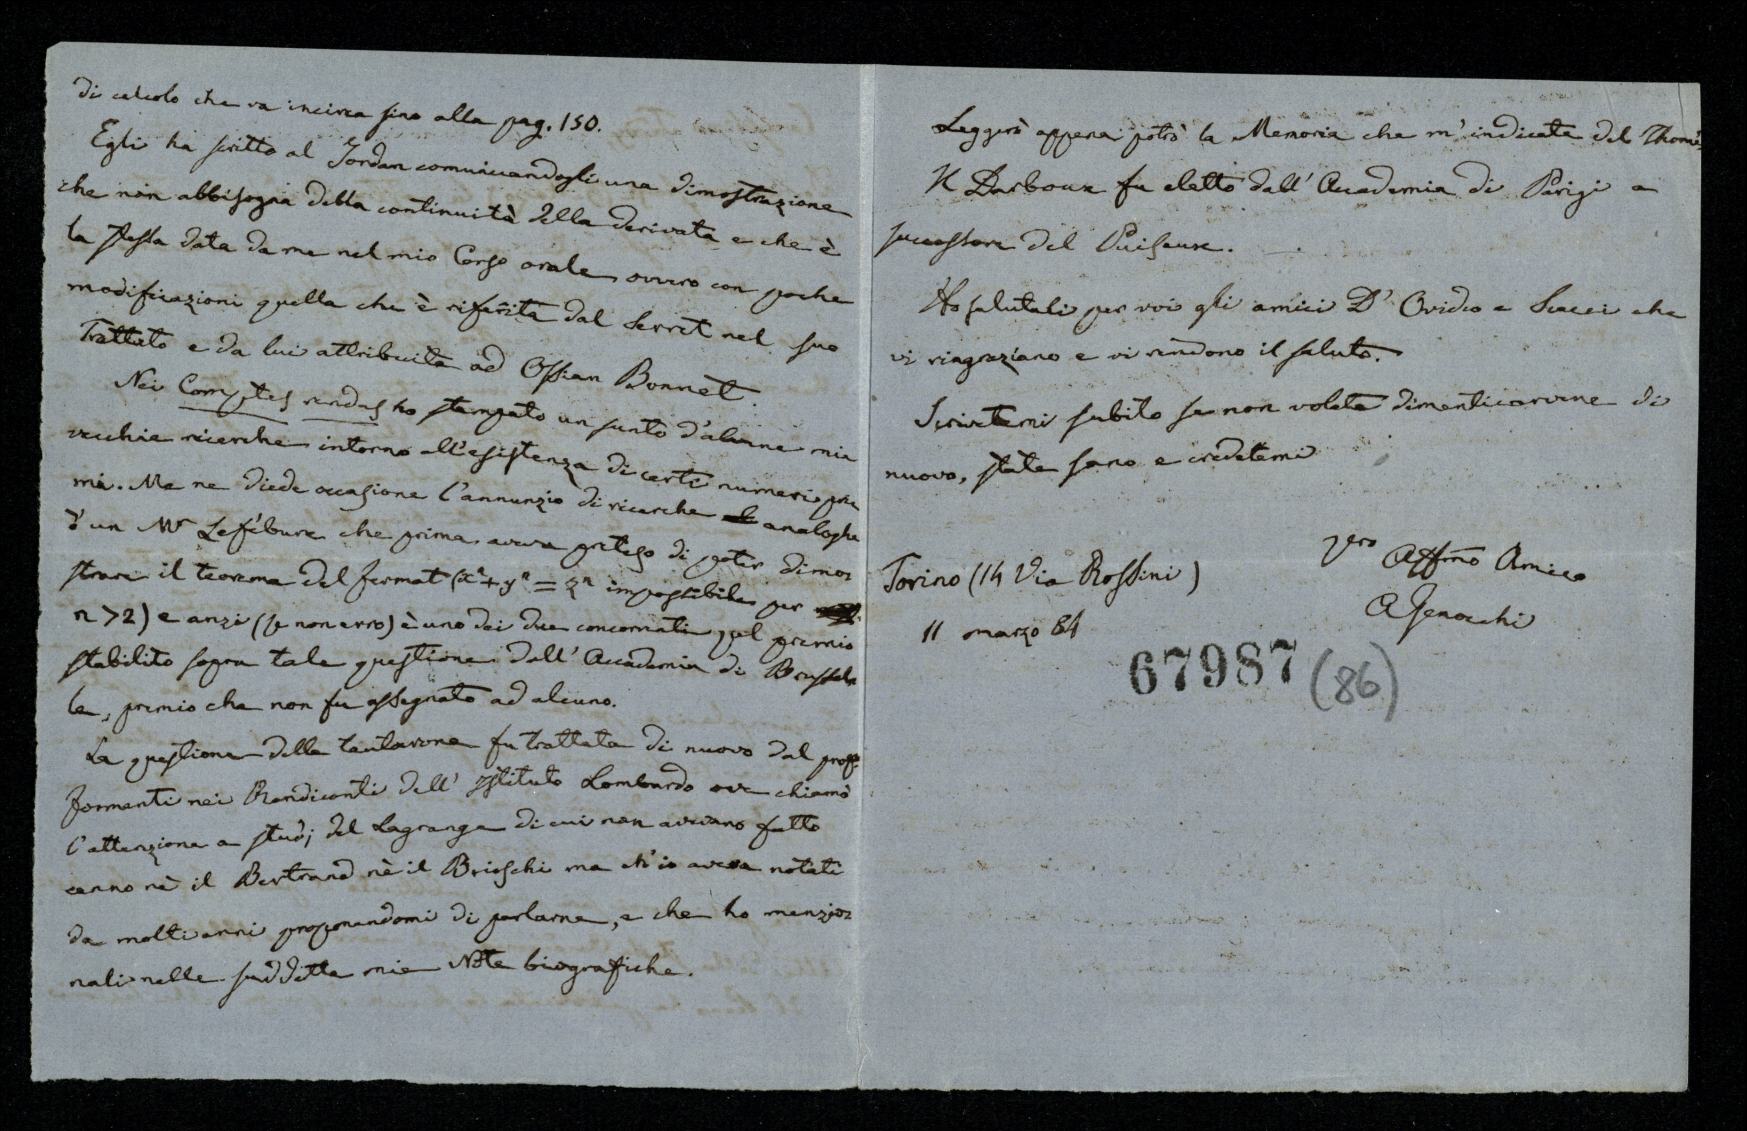 di calcolo che va incirca sino alla pag. 150.
Egli ha scritto al Jordan comunicandogli una dimostrazione
che non abbisogna della continuità della derivata e che è
la stessa data da me nel mio Corso orale, ovvero con poche
modificazioni quella che è riferita dal Serret nel suo
Trattato e da lui attribuita ad Ossian Bonnet.
Nei Comptes rendus ho stampato un sunto d'alcune mie
vecchie ricerche intorno all'esistenza di certi numeri pri
mi. Me ne diede occasione l'annunzio di ricerche analoghe
d'un Mr Lefébure che prima aveva preteso di poter dimo=
strare il teorema del Fermat (xⁿ+yⁿ=zⁿ impossibile per
n>2) e anzi (se non erro) è uno dei due concorrenti pel premio
stabilito sopra tale questione dall'Accademia di Brussel
le, premio che non fu assegnato ad alcuno.
La questione della tautocrona fu trattata di nuovo dal prof.
Formenti nei Rendiconti dell'Istituto Lombardo ove chiamò
l'attenzione a studj del Lagrange di cui non avevano fatto
cenno nè il Bertrand nè il Brioschi ma ch'io aveva notati
da molti anni proponendomi di parlarne, e che ho menzio=
nali nelle suddette mie Note biografiche.
Leggerò appena potrò la Memoria che m'indicate del Thomé.
Il Darboux fu eletto dall'Accademia di Parigi a
successore del Puiseux.
Ho salutati per voi gli amici D'Ovidio e Siacci che
vi ringraziano e vi rendono il saluto.
Scrivetemi subito se non volete dimenticarvene di
nuovo, state sano e credetemi
Vero Affmo Amico
Torino (14 Via Rossini)
A Genocchi
11 marzo 84
67987 (86)